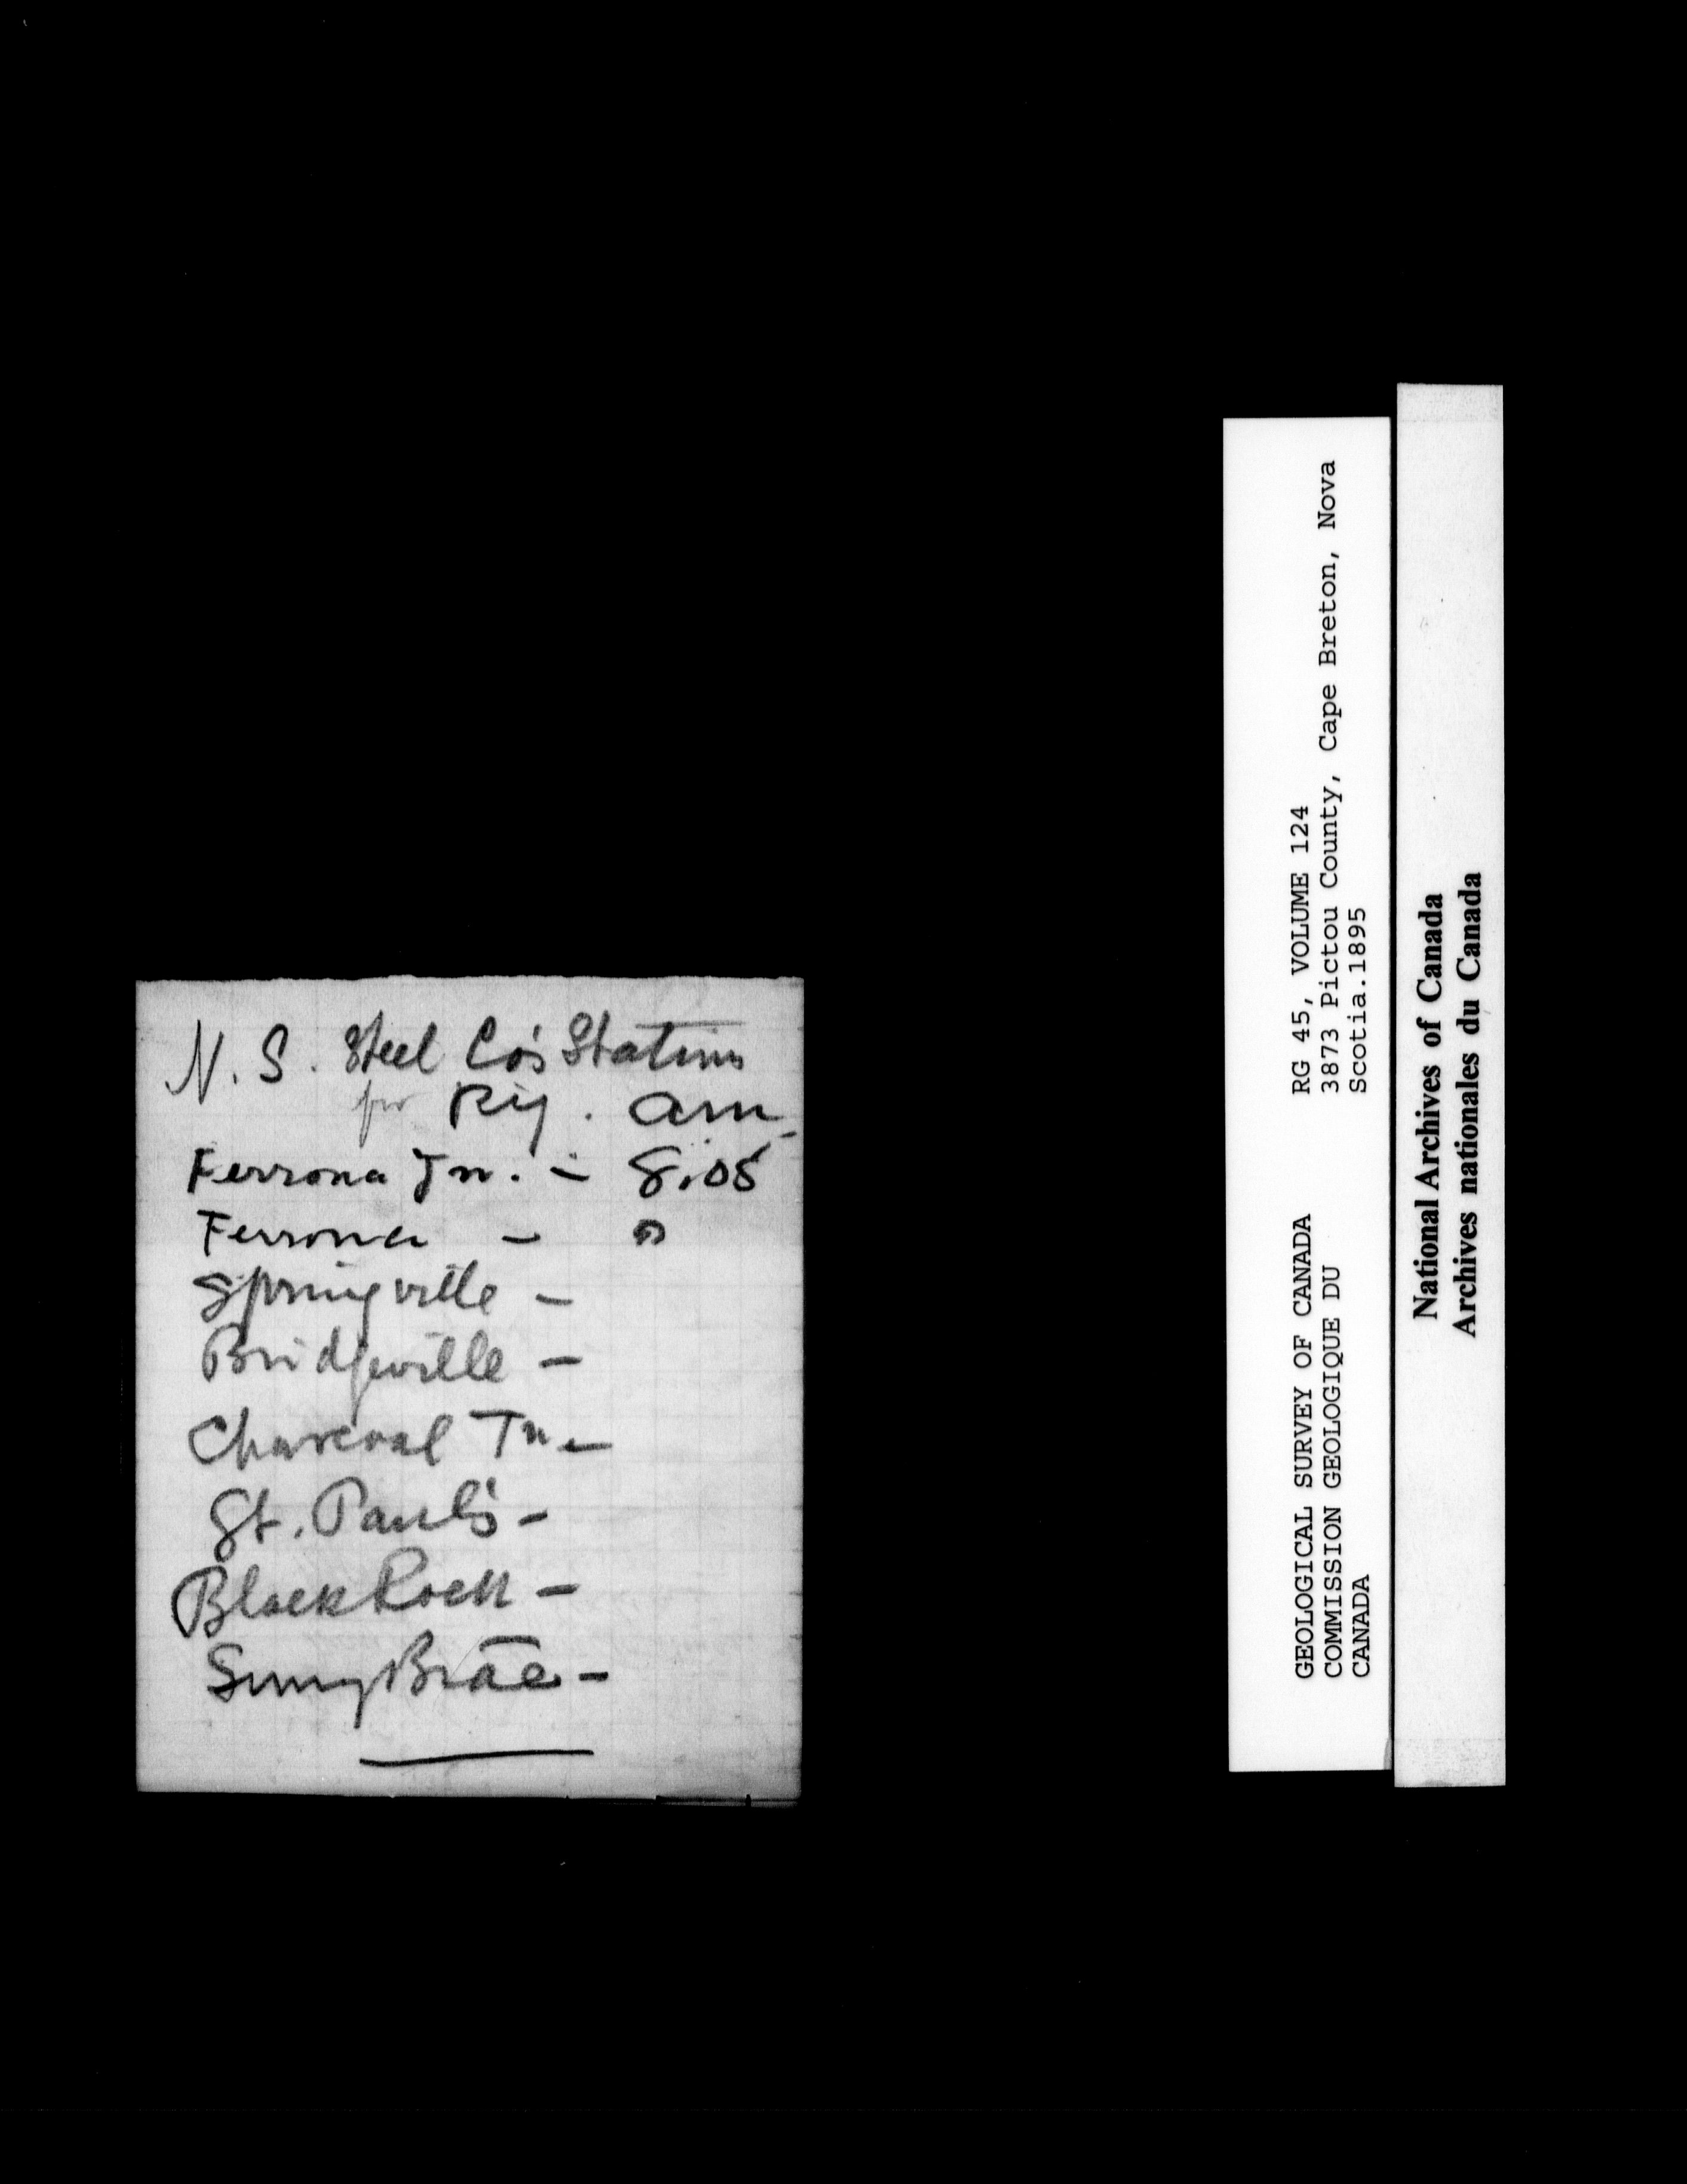 N. S. Steel Co's Stations
for Ry. am
Ferrona Jn. - 8.05
Ferrona -
Springville -
Bridgeville -
Charcoal Jn -
St. Paul's -
Black Rock -
Sunny Brae -
GEOLOGICAL SURVEY OF CANADA
COMMISSION GEOLOGIQUE DU
CANADA
RG 45, VOLUME 124
3873 Pictou County, Cape Breton, Nova
Scotia.1895
National Archives of Canada
Archives nationales du Canada